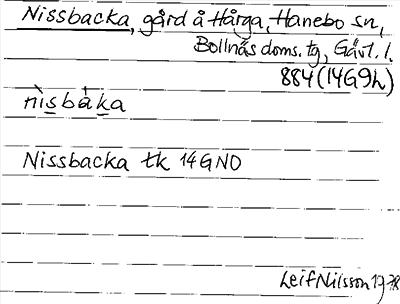 Nissbacka, gård å Hårga, Hanebo sn,
Bollnäs doms. tg, Gävl. l.
884 (14G9h)
nìsbák̲a
Nissbacka tk 14GNO
Leif Nilsson 1978